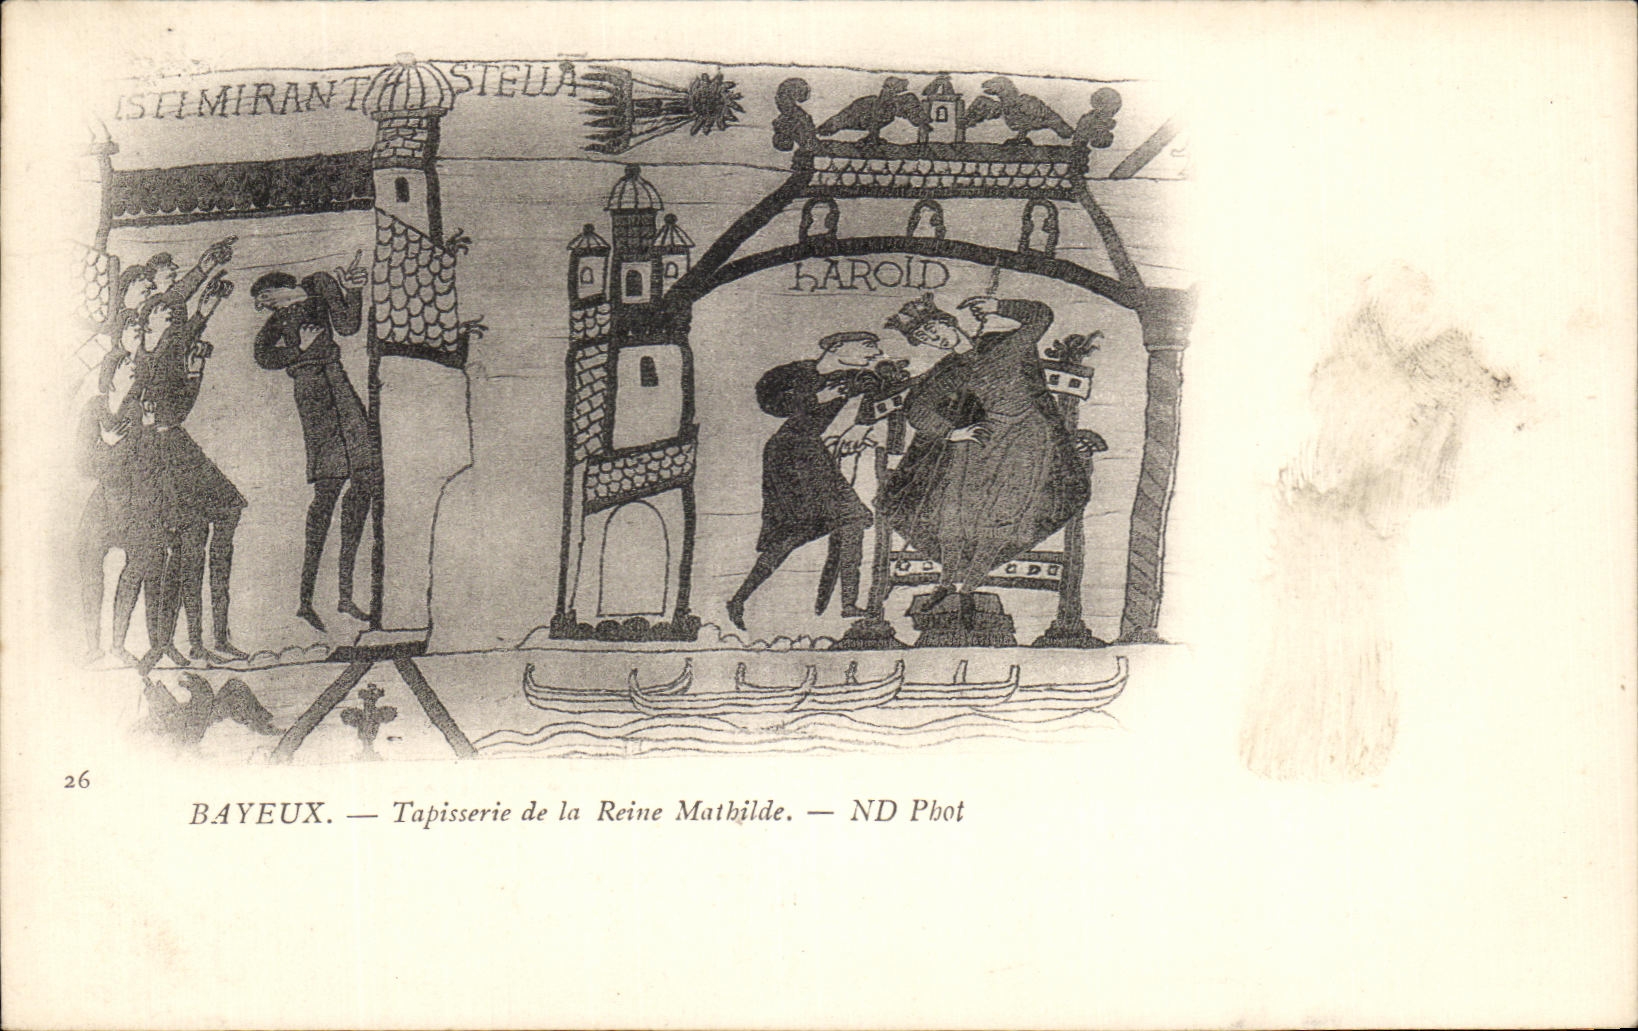 ISTI MIRANT STELLĀ
HAROLD
26
BAYEUX. — Tapisserie de la Reine Mathilde. — ND Phot